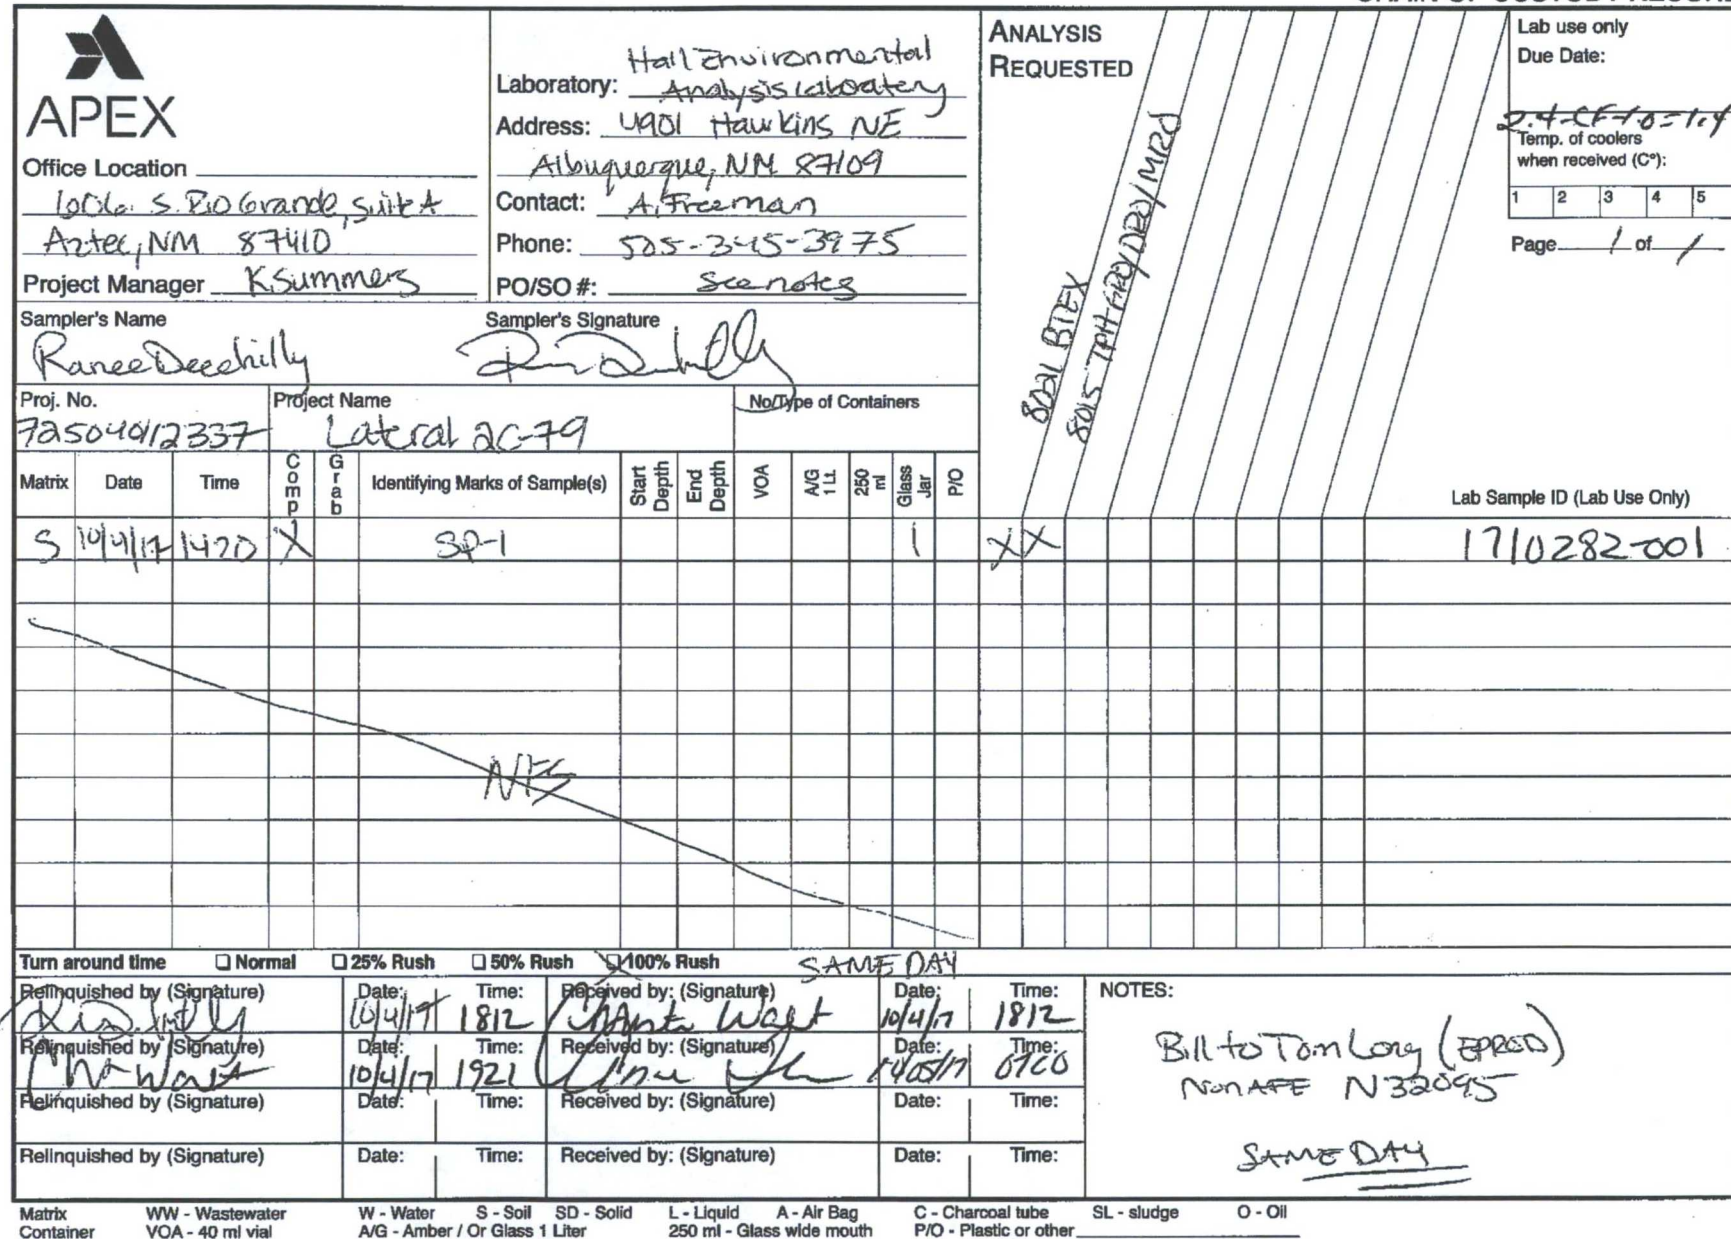 CHAIN OF CUSTODY RECORD
APEX
Office Location
606 S. Rio Grande, Suite A
Aztec, NM 87410
Project Manager K Summers
Laboratory: Hall Environmental
Analysis Laboratory
Address: 4901 Hawkins NE
Albuquerque, NM 87109
Contact: A. Freeman
Phone: 505-345-3975
PO/SO #: See notes
ANALYSIS
REQUESTED
8021 BTEX
8015 TPH GRO/DRO/MRO
Lab use only
Due Date:
2.4-CF1.0=1.4
Temp. of coolers
when received (C°):
1 2 3 4 5
Page 1 of 1
Sampler's Name
Ranee Deechilly
Sampler's Signature
Proj. No.
725040112337
Project Name
Lateral 2C-79
No/Type of Containers
Matrix Date Time Comp Grab Identifying Marks of Sample(s) Start Depth End Depth VOA A/G 1 Lt. 250 ml Glass Jar P/O
Lab Sample ID (Lab Use Only)
S 10/4/17 1420 X SP-1 1 X X 1710282-001
NFS
Turn around time Normal 25% Rush 50% Rush 100% Rush SAME DAY
Relinquished by (Signature) Date: Time: Received by: (Signature) Date: Time:
10/4/17 1812 10/4/17 1812
Relinquished by (Signature) Date: Time: Received by: (Signature) Date: Time:
10/4/17 1921 0700
Relinquished by (Signature) Date: Time: Received by: (Signature) Date: Time:
Relinquished by (Signature) Date: Time: Received by: (Signature) Date: Time:
NOTES:
Bill to Tom Long (EPROD)
Non AFE N32095
SAME DAY
Matrix WW - Wastewater W - Water S - Soil SD - Solid L - Liquid A - Air Bag C - Charcoal tube SL - sludge O - Oil
Container VOA - 40 ml vial A/G - Amber / Or Glass 1 Liter 250 ml - Glass wide mouth P/O - Plastic or other